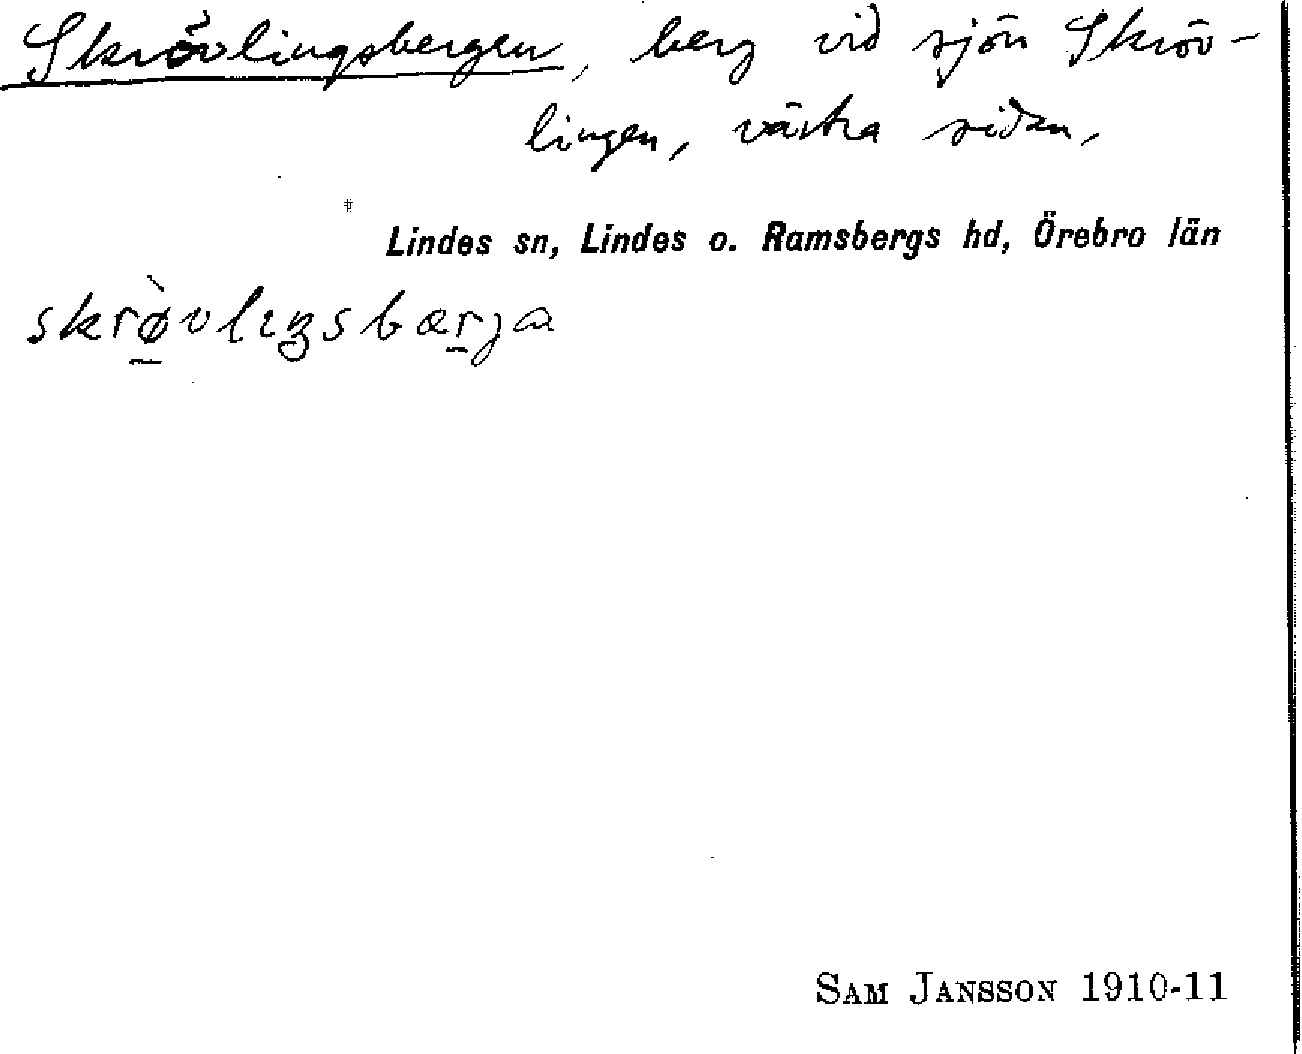 Skrövlingsbergen, berg vid sjön Skröv-
lingen, västra sidan,
Lindes sn, Lindes o. Ramsbergs hd, Örebro län
skrø̠̀vlıŋsbær̠ja
SAM JANSSON 1910-11